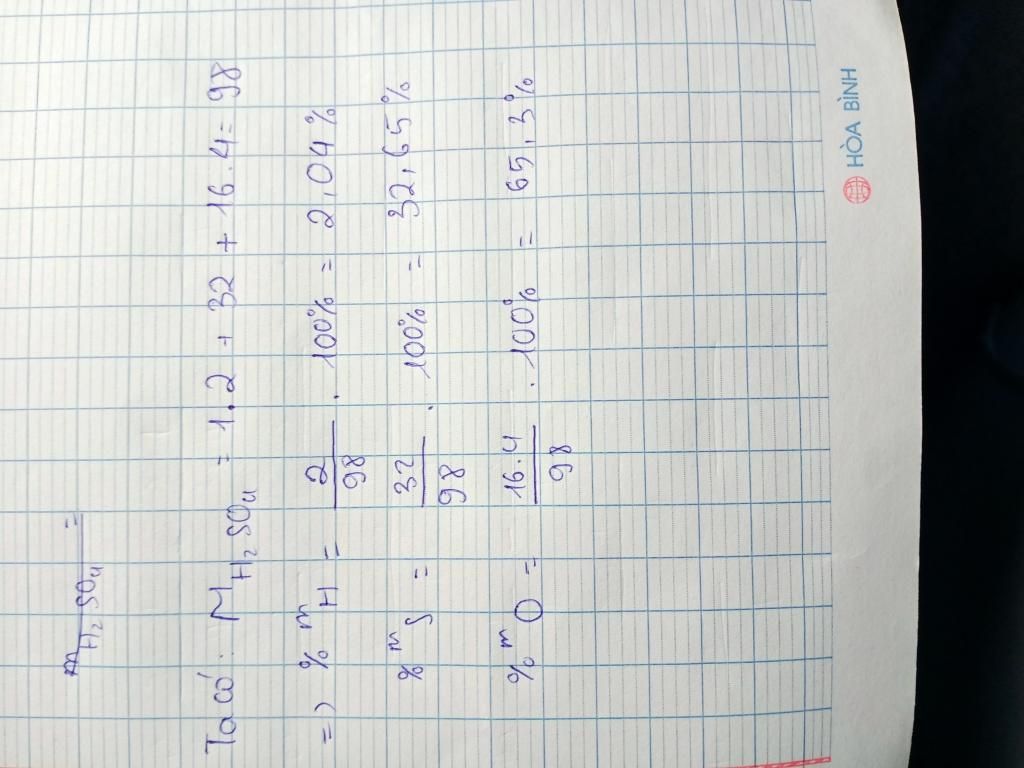 m H₂SO₄ =
Ta có: M H₂SO₄ = 1.2 + 32 + 16.4 = 98
=> % m H = 2/98 . 100% = 2,04%
% m S = 32/98 . 100% = 32,65%
% m O = 16.4/98 . 100% = 65,3%
HÒA BÌNH